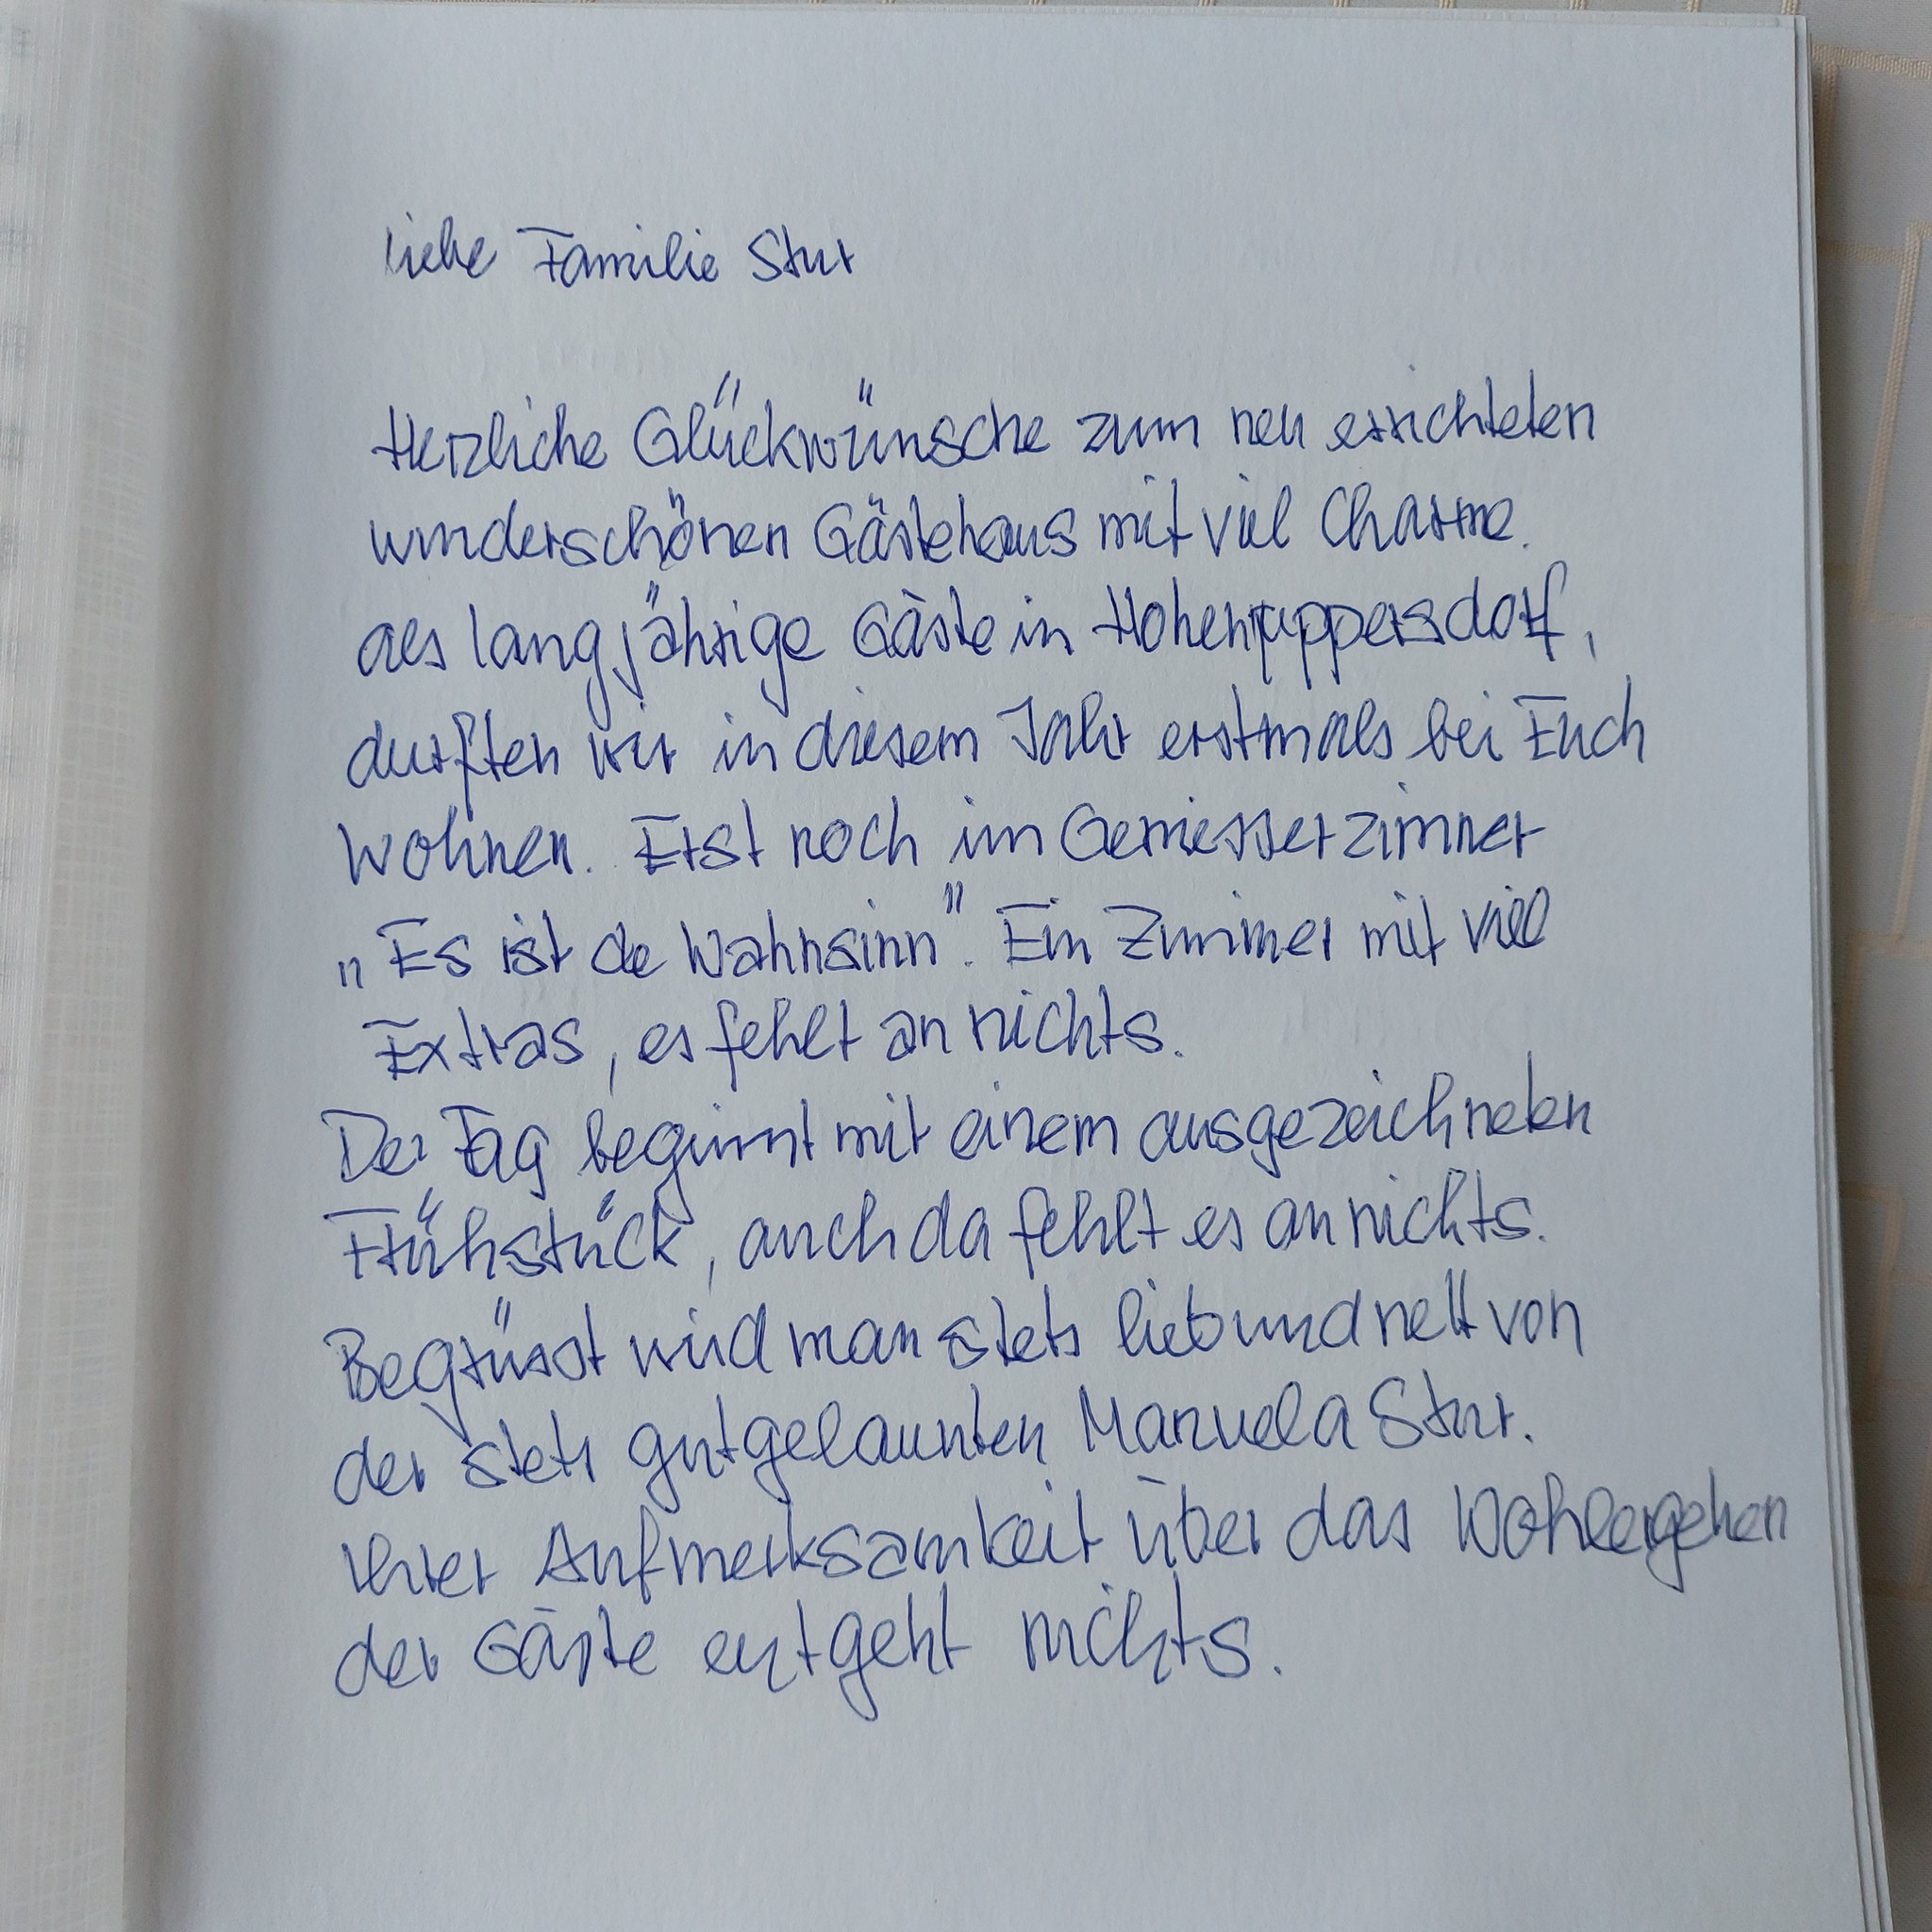 Liebe Familie Stur
Herzliche Glückwünsche zum neu errichteten
wunderschönen Gästehaus mit viel Charme.
als langjährige Gäste in Hohenruppersdorf,
durften wir in diesem Jahr erstmals bei Euch
wohnen. Erst noch im Geniesserzimmer
„Es ist de Wahnsinn". Ein Zimmer mit viel
Extras, es fehlt an nichts.
Der Tag beginnt mit einem ausgezeichneten
Frühstück, auch da fehlt es an nichts.
Begrüsst wird man stets lieb und nett von
der stets gutgelaunten Manuela Stur.
Ihrer Aufmerksamkeit über das Wohlergehen
der Gäste entgeht nichts.